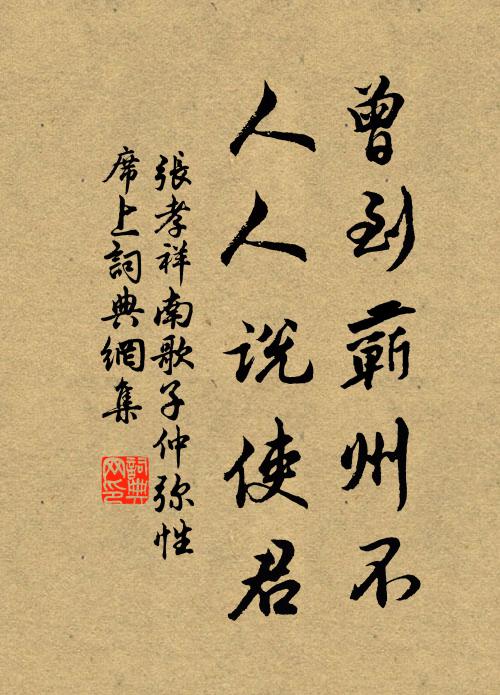 曾到蘄州不
人人說使君
張孝祥南歌子仲弥性
席上詞典網集
詞典
网印